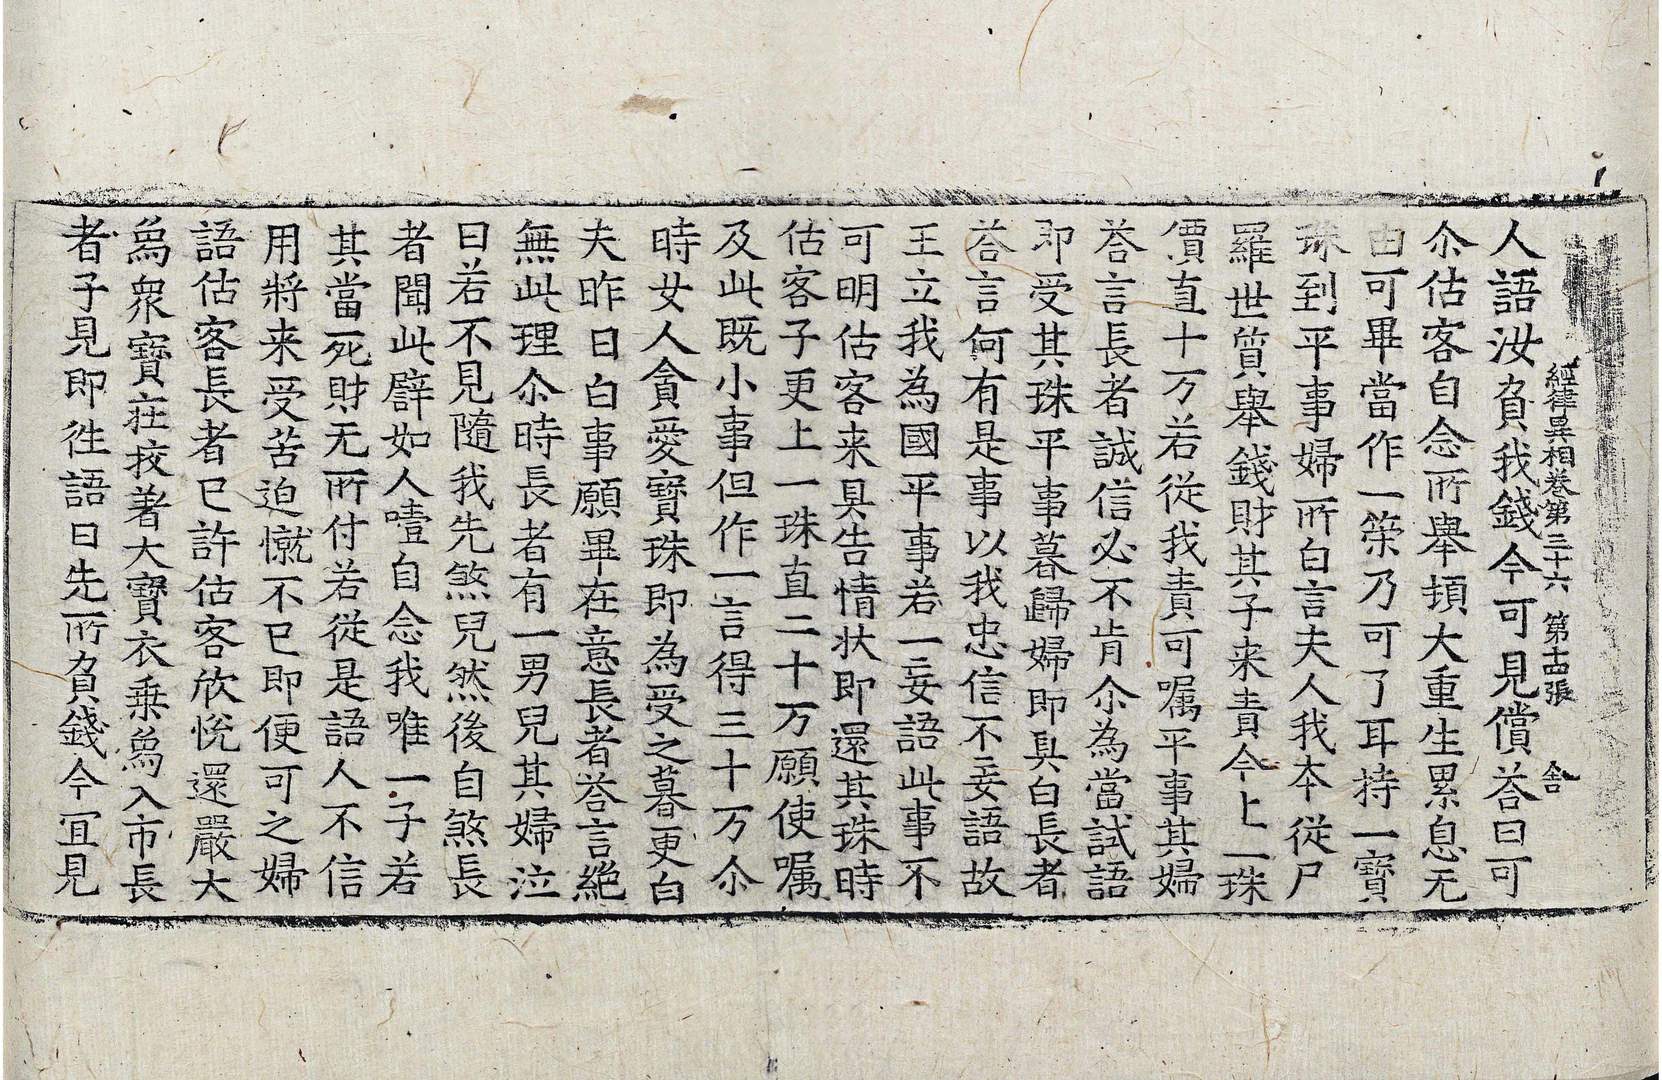 經律異相卷第三十六　第十四張　舍
人語汝負我錢今可見償荅曰可
尒估客自念所舉頓大重生累息无
由可畢當作一䇿乃可了耳持一寶
珠到平事婦所白言夫人我本從尸
羅世質舉錢財其子来責今上一珠
價直十万若從我責可嘱平事其婦
荅言長者誠信必不肯尒為當試語
即受其珠平事暮歸婦即具白長者
荅言何有是事以我忠信不妄語故
王立我為國平事若一妄語此事不
可明估客来具告情状即還其珠時
估客子更上一珠直二十万願使嘱
及此既小事但作一言得三十万尒
時女人貪愛寶珠即為受之暮更白
夫昨日白事願畢在意長者荅言絶
無此理尒時長者有一男兒其婦泣
曰若不見隨我先煞兒然後自煞長
者聞此譬如人噎自念我唯一子若
其當死財无所付若從是語人不信
用將来受苦迫憱不已即便可之婦
語估客長者已許估客欣悅還嚴大
爲眾寶莊挍著大寶衣乗爲入市長
者子見即徃語曰先所負錢今冝見